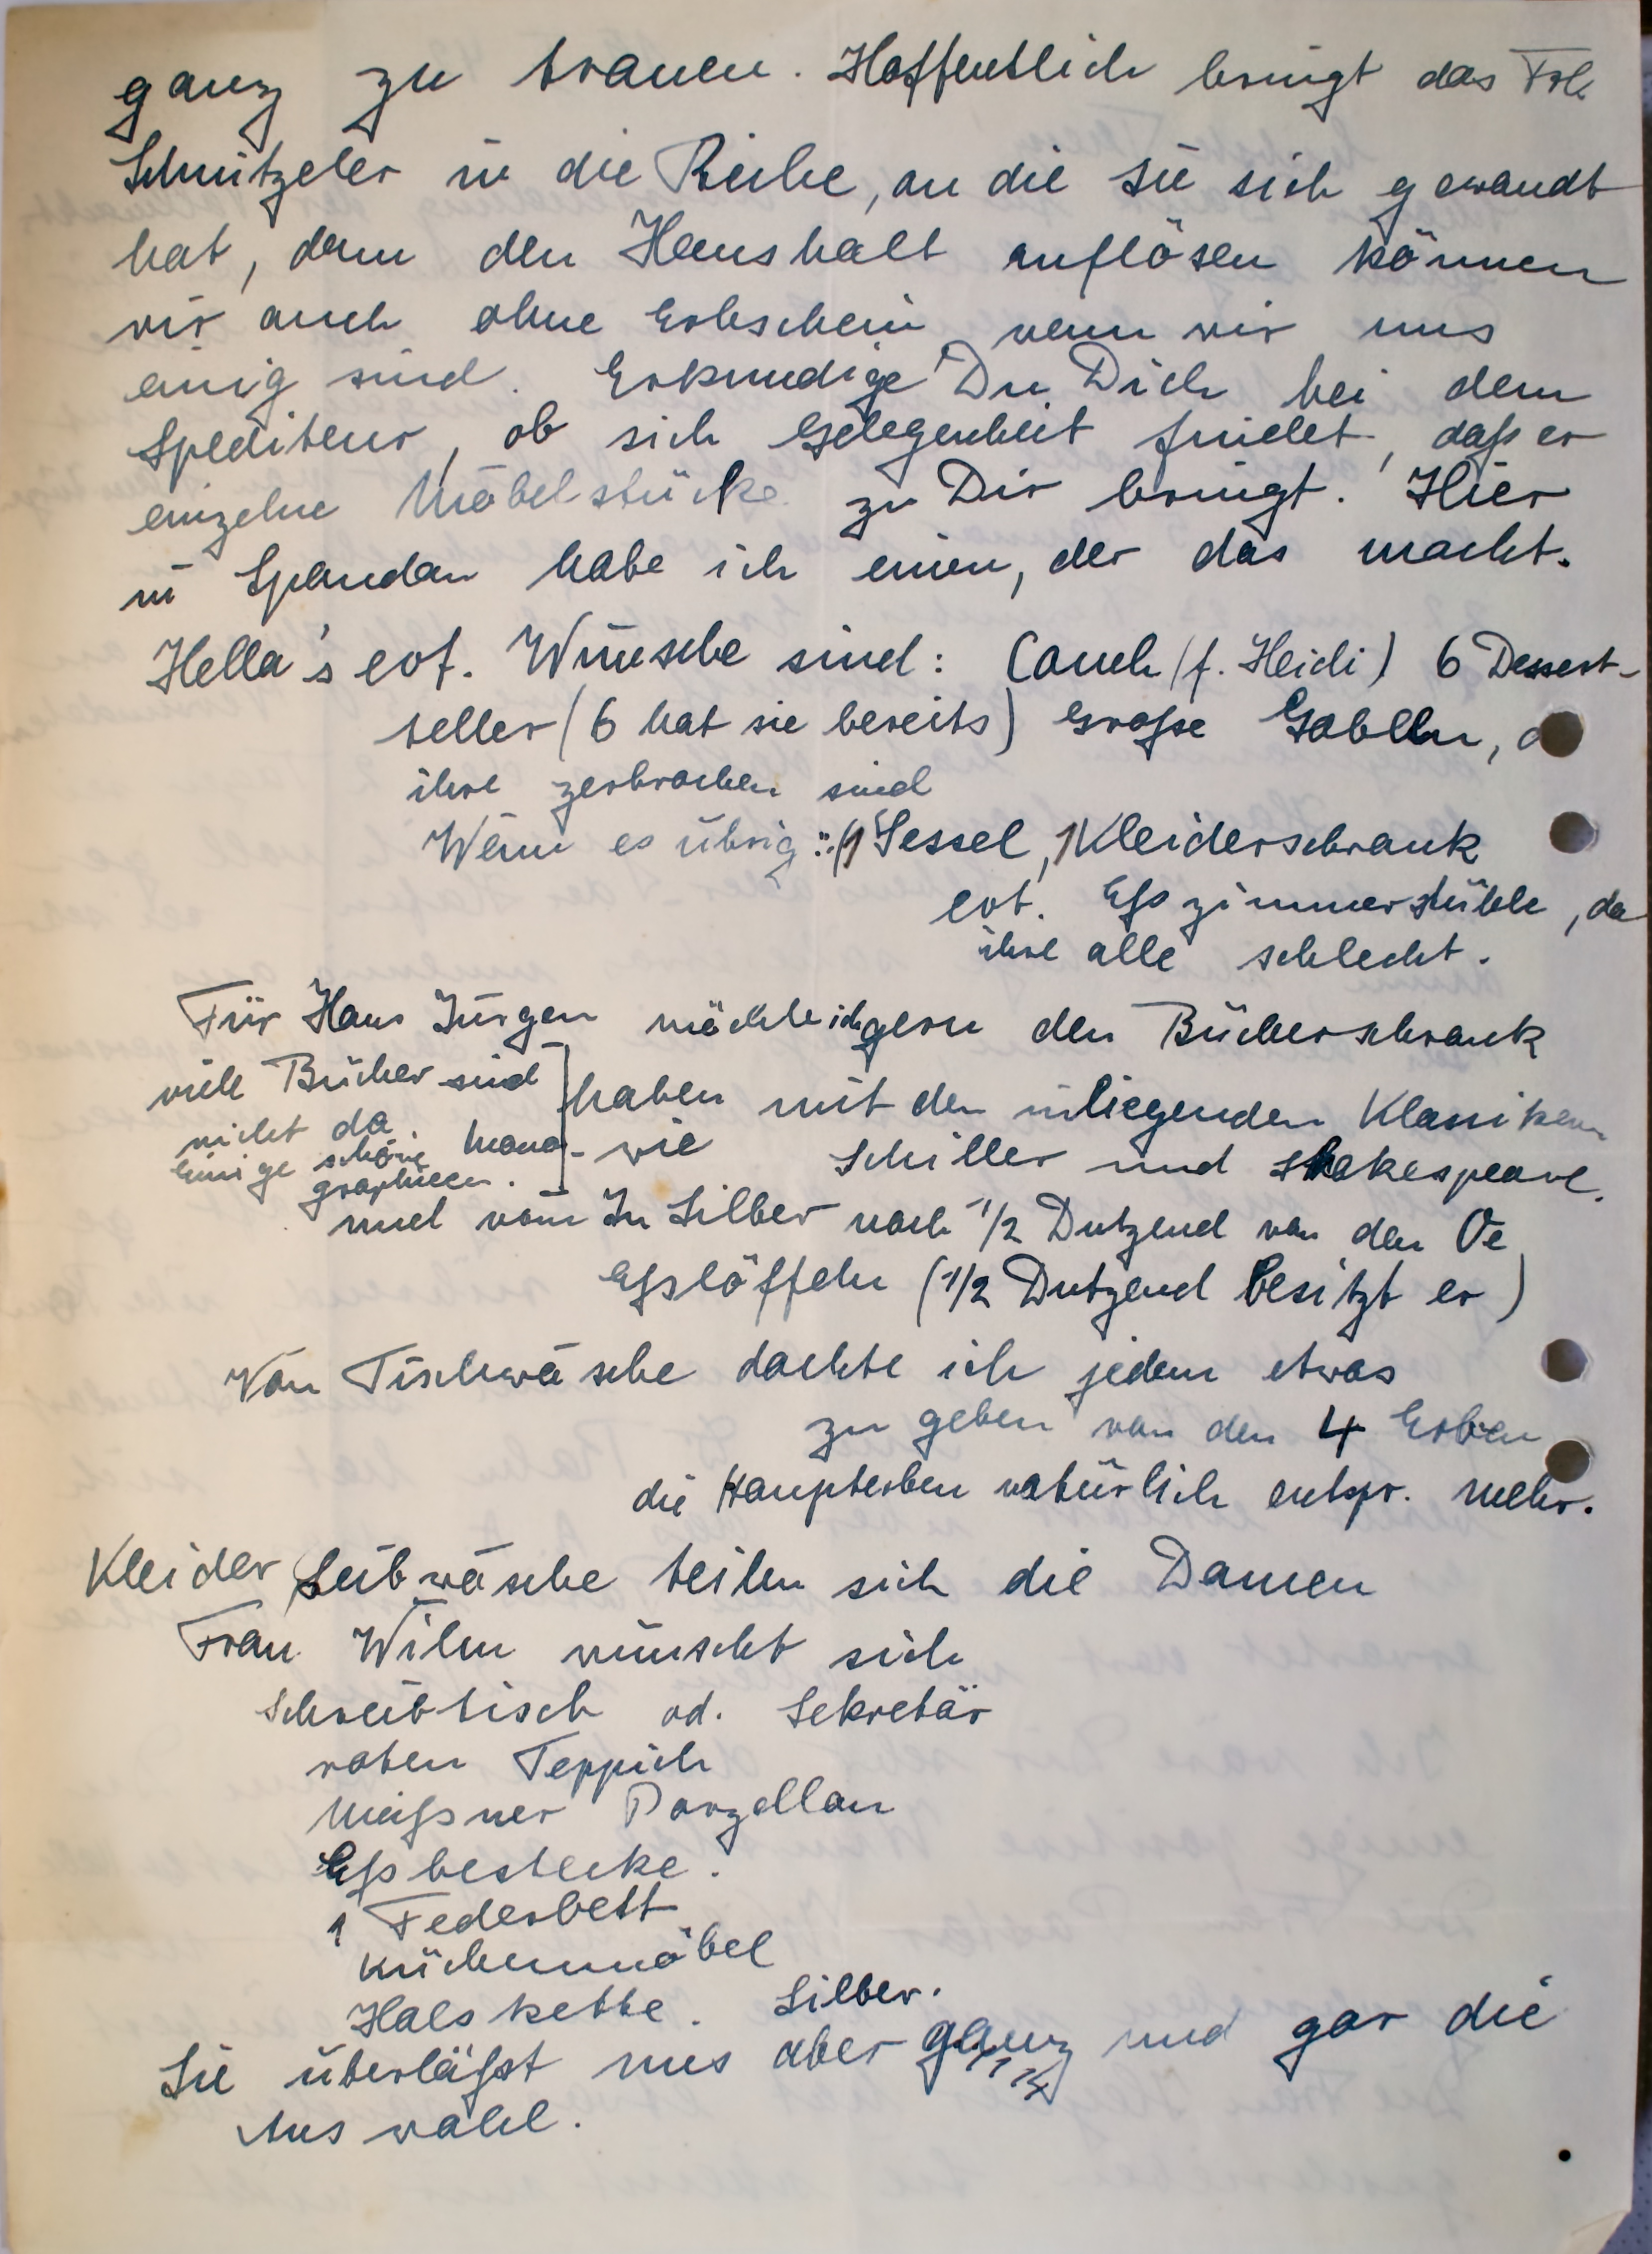 ganz zu trauen. Hoffentlich bringt das Frl.
Schnitzeler in die Reihe, an die sie sich gewandt
hat, denn den Haushalt auflösen können
wir auch ohne Erbschein wenn wir uns
einig sind. Erkundige Du Dich bei dem
Spediteur, ob sich Gelegenheit findet, daß er
einzelne Möbelstücke zu Dir bringt. Hier
in Spandau habe ich einen, der das macht.
Hella's evt. Wünsche sind: Couch (f. Heidi) 6 Dessert-
teller (6 hat sie bereits) Große Gabeln,
ihre zerbrochen sind
Wenn es übrig: (1 Sessel, 1 Kleiderschrank
evt. Eßzimmerstühle, da
ihre alle schlecht.
Für Hans Jürgen möchte ich gern den Bücherschrank
haben mit den inliegenden Klassikern
wie Schiller und Shakespeare.
viele Bücher sind
nicht da.
Einige schöne Mono-
graphieen.
und vom Silber noch 1/2 Dutzend von den
Eßlöffeln (1/2 Dutzend besitzt er)
Von Tischwäsche dachte ich jedem etwas
zu geben von den 4 Erben
die Haupterben natürlich entspr. mehr.
Kleider, Leibwäsche teilen sich die Damen
Frau Wilm wünscht sich
Schreibtisch od. Sekretär
roten Teppich
Meißner Porzellan
Eßbestecke.
1 Federbett
Küchenmöbel
Halskette. Silber.
Sie überläßt uns aber ganz und gar die
Auswahl.